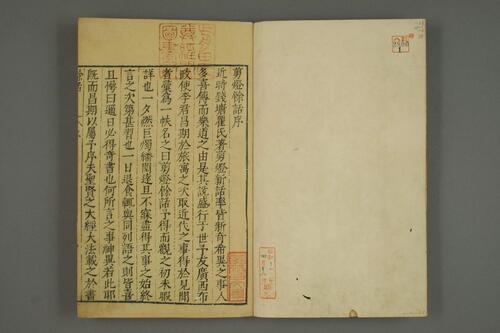 剪燈餘話序
近時錢塘瞿氏著剪燈新話率皆新奇希異之事人
多喜傳而樂道之由是其說盛行于世予友廣西布
政使李君昌期於旅寓之次取近代之事得於見聞
者彙爲一帙名之曰剪燈餘話予得而觀之初未暇
詳也一夕燃巨燭繙閱達旦不寐盡得其事之始終
言之次第甚習也一日退食輒與同列語之則皆喜
且愕曰邇日必得奇書也何所言之事神異若此耶
既而昌期以屬予序夫聖賢之大經大法載之於書